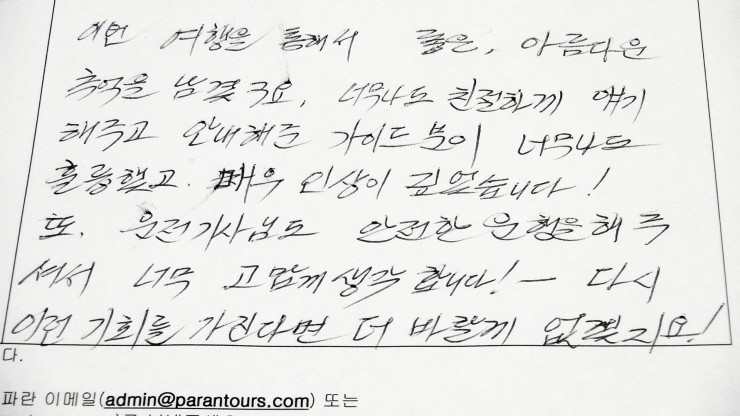 이번 여행을 통해서 좋은, 아름다운
추억을 남겼구요, 너무나도 친절하게 얘기
해주고 안내해준 가이드분이 너무나도
훌륭했고. 매우 인상이 깊었습니다!
또. 운전기사님도 안전한 운행을 해주
셔서 너무 고맙게 생각합니다! — 다시
이런 기회를 가진다면 더 바랄게 없겠지요!
다.
파란 이메일(admin@parantours.com) 또는